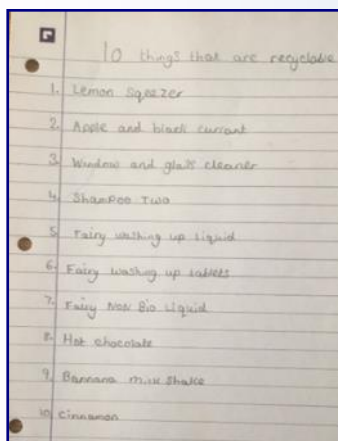 10 things that are recyclable
1. Lemon Sqeezer
2. Apple and black currant
3. Window and glass cleaner
4. Shampoo Two
5. Fairy washing up liquid
6. Fairy washing up tablets
7. Fairy Non Bio Liquid
8. Hot chocolate
9. Bannana milk shake
10. Cinnamon